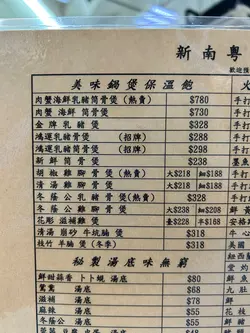 新南粵
美味鍋煲保溫飽
肉蟹海鮮乳豬筒骨煲(熱賣) $780
肉蟹 海鮮筒骨煲 $730
金牌乳豬煲 $328
鴻運乳豬筒骨煲 (招牌) $298
鴻運筒骨煲 (招牌) $298
新鮮筒骨煲 $288
胡椒雞腳骨煲(熱賣) 大$218 細$188
清湯雞腳骨煲 大$218 細$168
冬蔭公乳豬骨煲(熱賣) $328
冬蔭公雞腳骨煲 大$238 細$208
花彫滋補雞煲 大$268 細$168
清湯崩砂牛坑腩煲 $318
枝竹羊腩煲(冬季) $318
秘製湯底味無窮
鮮甜蒜香卜卜蜆湯底 $80
鴛鴦 湯底 $78
滋補 湯底 $78
麻辣 湯底 $55
冬蔭公 湯底 $55
手打
手打
手打
手打
墨魚
手打
手打
手打
手打
鮮
安格
牛心
美國
紐西